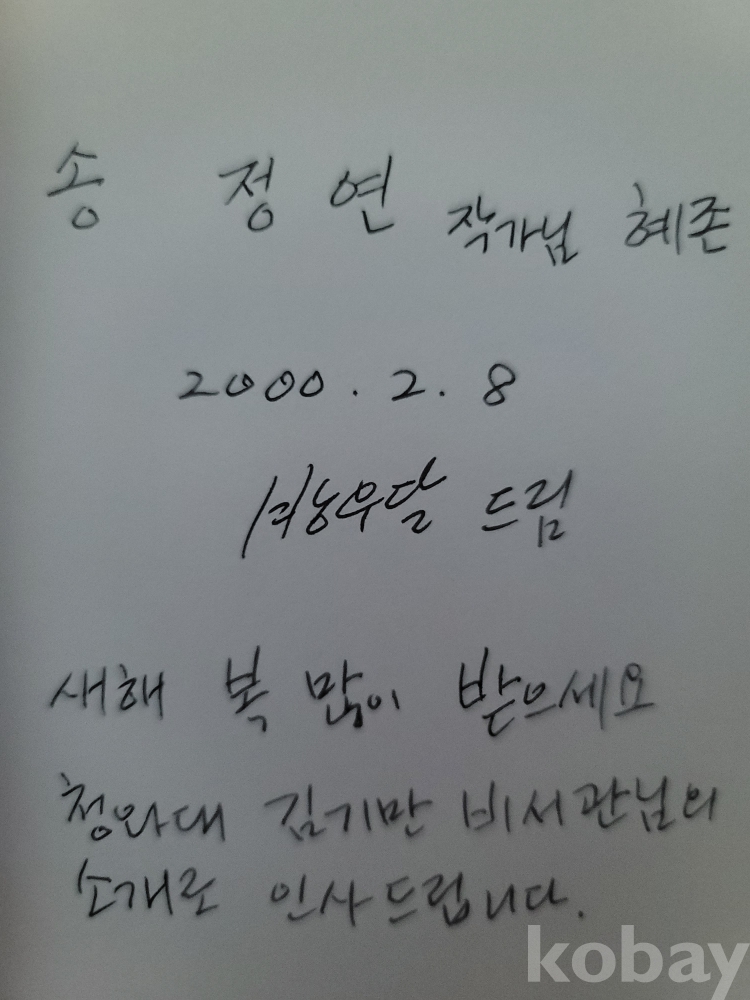 송 정 연 작가님 혜존
2000. 2. 8
드림
새해 복 많이 받으세요
청와대 김기만 비서관님의
소개로 인사드립니다.
kobay